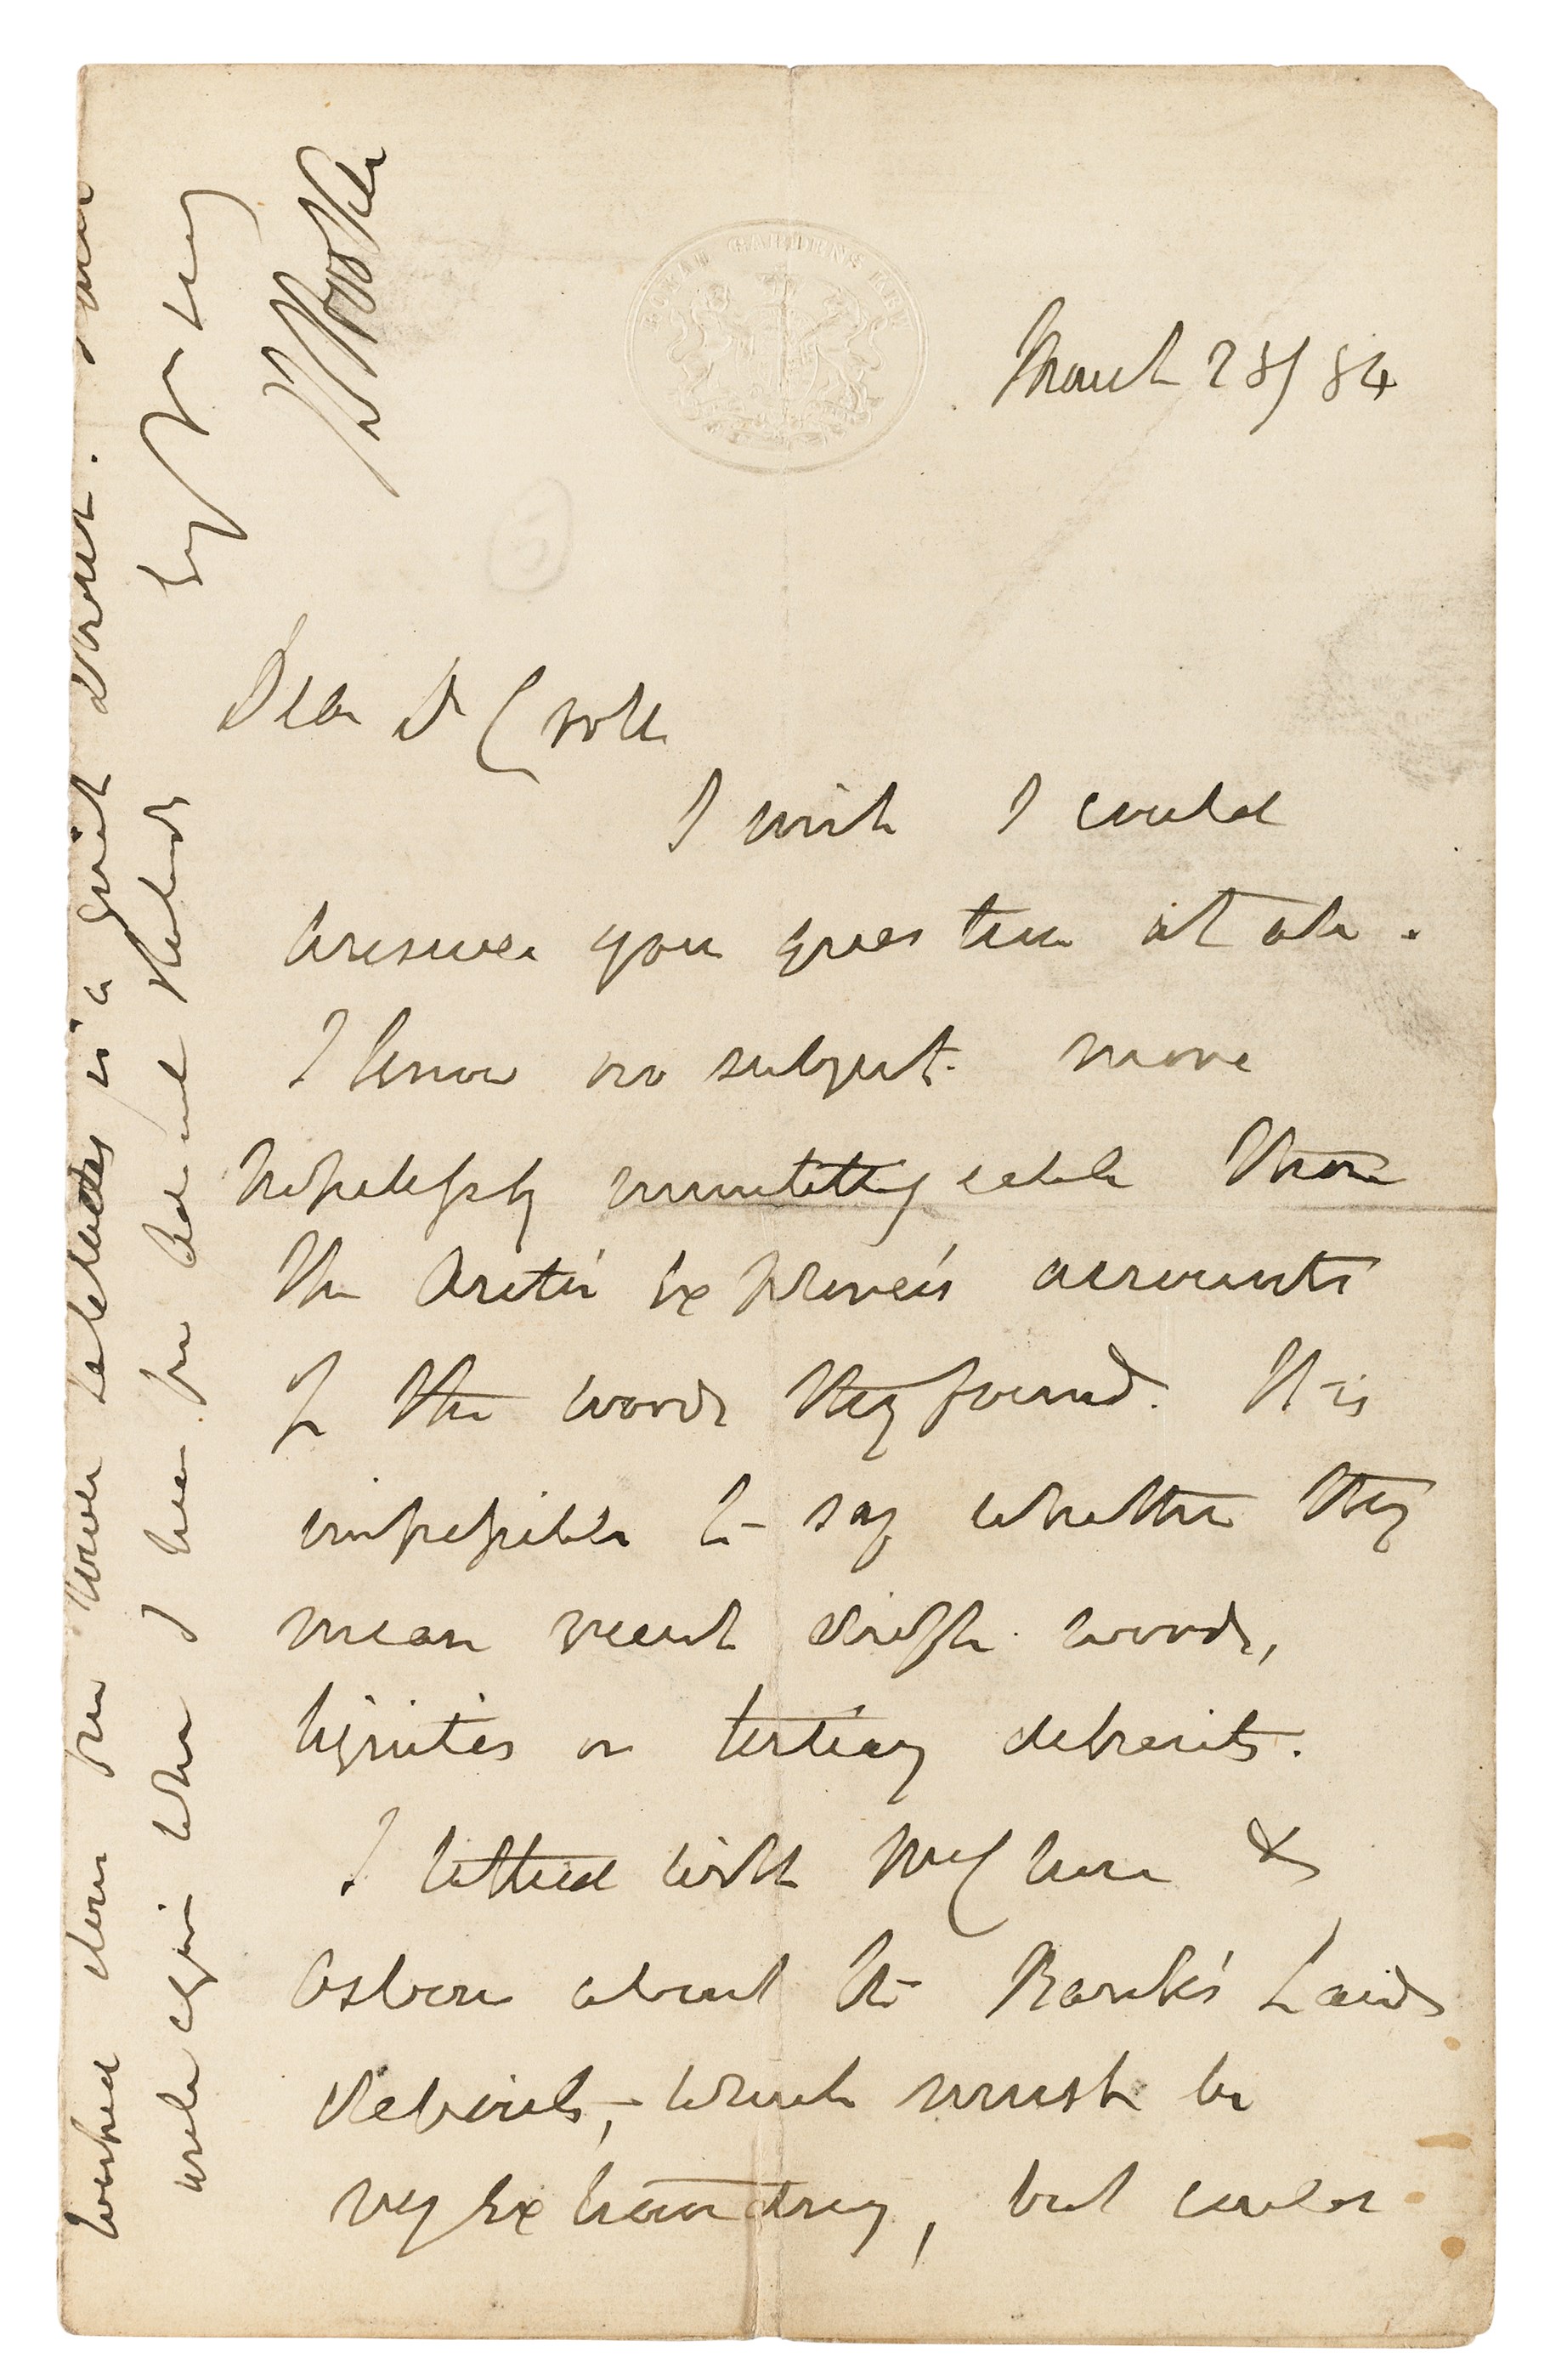 ROYAL GARDENS KEW
March 28/84
Dear Dr Croll
I wish I could
answer your question at all.
I know no subject more
hopelessly
the Arctic Explorers accounts
of the woods they found. It is
impossible to say whether they
mean recent drift woods,
lignites or tertiary deposits.
I talked with McClure &
Osborn about the Bank's Land
deposits, which must be
very extraordinary, but could
worked down from
in a quiet
write again when I have
Very
JD Hooker